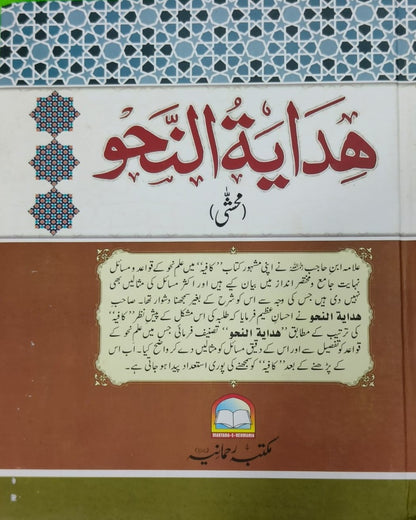 هِدَايَةُ النَّحو
(محشّٰی)
علامہ ابن حاجب رحمہ اللہ نے اپنی مشہور کتاب ”کافیہ“ میں علم نحو کے قواعد و مسائل
نہایت جامع و مختصر انداز میں بیان کیے ہیں اور اکثر مسائل کی مثالیں بھی
نہیں دی ہیں جس کی وجہ سے اس کو شرح کے بغیر سمجھنا دشوار تھا۔ صاحب
هداية النحو نے احسان عظیم فرمایا کہ طلبہ کی اس مشکل کے پیش نظر ”کافیہ“
کی ترتیب کے مطابق ”هداية النحو“ تصنیف فرمائی جس میں علم نحو کے
قواعد کو تفصیل سے اور اس کے دقیق مسائل کو مثالیں دے کر واضح کیا۔ اب اس
کے پڑھنے کے بعد ”کافیہ“ کو سمجھنے کی پوری استعداد پیدا ہو جاتی ہے۔
MAKTABA-E-REHMANIA
مکتبہ رحمانیہ